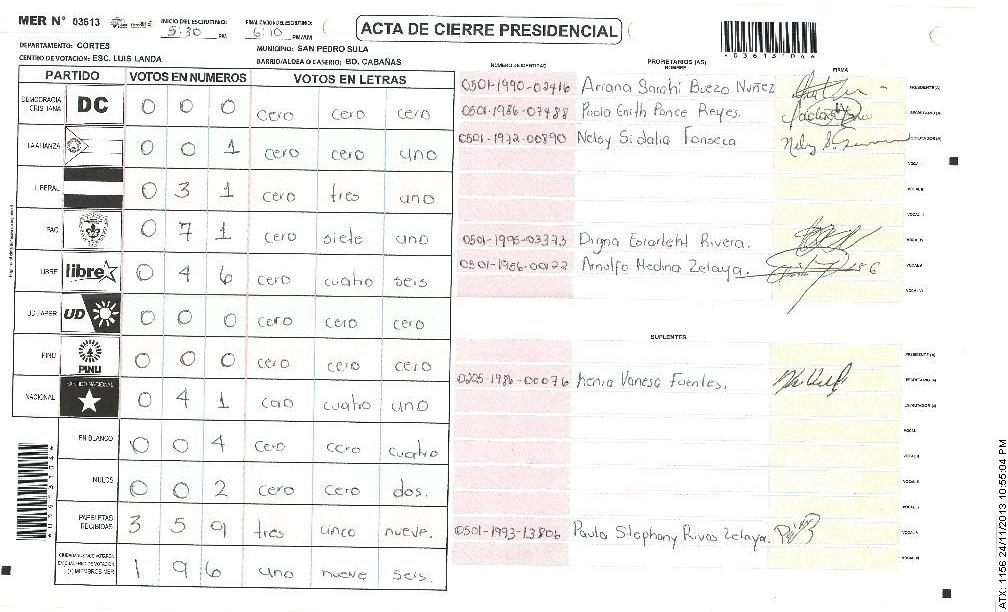 MER N° 03613
INICIO DEL ESCRUTINIO: 5:30 PM
FINALIZACION DEL ESCRUTINIO: 6:10 PM/AM
ACTA DE CIERRE PRESIDENCIAL
DEPARTAMENTO: CORTES
MUNICIPIO: SAN PEDRO SULA
CENTRO DE VOTACION: ESC. LUIS LANDA
BARRIO/ALDEA O CASERIO: BO. CABAÑAS
PARTIDO VOTOS EN NUMEROS VOTOS EN LETRAS
DEMOCRACIA CRISTIANA DC 0 0 0 cero cero cero
LA ALIANZA 0 0 1 cero cero uno
LIBERAL 0 3 1 cero tres uno
PAC 0 7 1 cero siete uno
LIBRE libre 0 4 6 cero cuatro seis
UD FAPER UD 0 0 0 cero cero cero
PINU PINU 0 0 0 cero cero cero
NACIONAL PARTIDO NACIONAL 0 4 1 cero cuatro uno
EN BLANCO 0 0 4 cero cero cuatro
NULOS 0 0 2 cero cero dos.
PAPELETAS RECIBIDAS 3 5 9 tres cinco nueve.
CIUDADANOS QUE VOTARON 1 9 6 uno nueve seis.
NUMERO DE IDENTIDAD
PROPIETARIOS (AS)
NOMBRE
FIRMA
0501-1990-02416 Ariana Sarahi Buezo Nuñez PRESIDENTE(A)
0501-1986-07488 Paola Enith Ponce Reyes. SECRETARIO(A)
0501-1972-00890 Nelsy Sidalia Fonseca ESCRUTADOR(A)
VOCAL I
VOCAL II
VOCAL III
0501-1995-03373 Digna Escarleht Rivera. VOCAL IV
0501-1986-00122 Arnolfo Medina Zelaya. VOCAL V
VOCAL VI
SUPLENTES
PRESIDENTE (A)
0205-1986-00076 Kenia Vanesa Fuentes. SECRETARIO (A)
ESCRUTADOR (A)
VOCAL I
VOCAL II
VOCAL III
VOCAL IV
0501-1993-13806 Paula Stephany Rivas Zelaya. VOCAL V
VOCAL VI
ATX: 1156 24/11/2013 10:55:04 PM